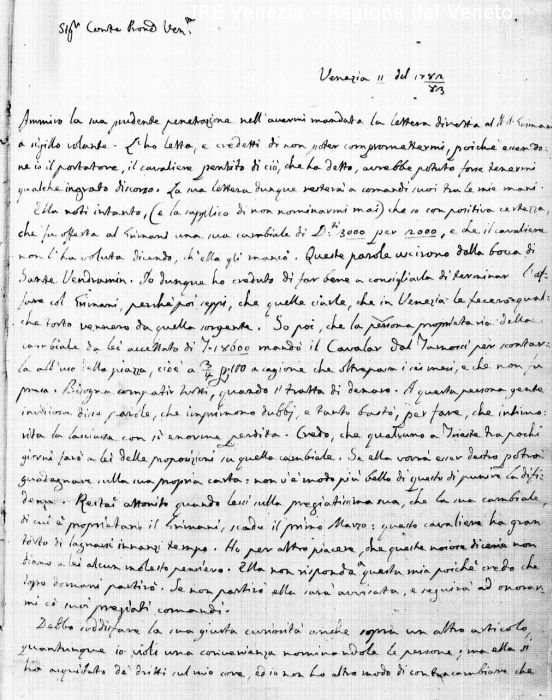 IRE Venezia - Regione del Veneto
Sigr Conte Rond Venn
Venezia 11 del 1782/83
Ammiro la sua prudente penetrazione nell'avermi mandata la lettera diretta al Grimani
a sigillo volante. L'ho letta, e credetti di non poter compromettermi, poiché essendo-
ne io il portatore, il cavaliere pentito di ciò, che ha detto, avrebbe potuto forse tenermi
qualche ingrato discorso. La sua lettera dunque resterà a comandi suoi tra le mie mani.
Ella noti intanto, (e la supplico di non nominarmi mai) che so con positiva certezza,
che fu offerta al Grimani una sua cambiale di D.ti 3000 per 2000, e che il cavaliere
non l'ha voluta dicendo, ch'ella gli mancò. Queste parole uscirono dalla bocca di
Sante Vendramin. Io dunque ho creduto di far bene a consigliarla di terminar l'af-
fare col Grimani, perché poi seppi, che quelle ciarle, che in Venezia le fecero qual-
che torto vennero da quella sorgente. So poi, che la persona proprietaria della
cambiale da lei accettata di 18600 mandò il Cavalar dal per scontar-
la all'uso della piazza, cioè a 3/4 p. 100 a cagione che oltrepassa i sei mesi, e che non fu
presa. Bisogna compatir tutti, quando si tratta di denaro. A questa persona gente
invidiosa disse parole, che imprimono dubbj, e tanto bastò, per fare, che intimo-
rita la lasciasse con sì enorme perdita. Credo, che qualcuno a Trieste tra pochi
giorni farà a lei delle proposizioni su quella cambiale. Se ella vorrà esser destro potrà
guadagnare sulla sua propria carta: non v'è modo più bello di questo di punire la diffi-
denza. Restai attonito quando lessi sulla pregiatissima sua, che la sua cambiale,
di cui è proprietario il Grimani, scade il primo Marzo: questo cavaliere ha gran
torto di lagnarsi innanzi tempo. Ho per altro piacere, che queste noiose dicerie non
diano a lei alcun molesto pensiero. Ella non risponda a questa mia poiché credo che
dopo domani partirò. Se non partirò ella sarà avvisata, e seguirà ad onorar-
mi co' suoi pregiati comandi.
Debbo soddisfare la sua giusta curiosità anche sopra un altro articolo,
quantunque io violi una convenienza nominandole le persone; ma ella si
ha acquistato de' dritti sul mio core, ed io non ho altro modo di contracambiare che